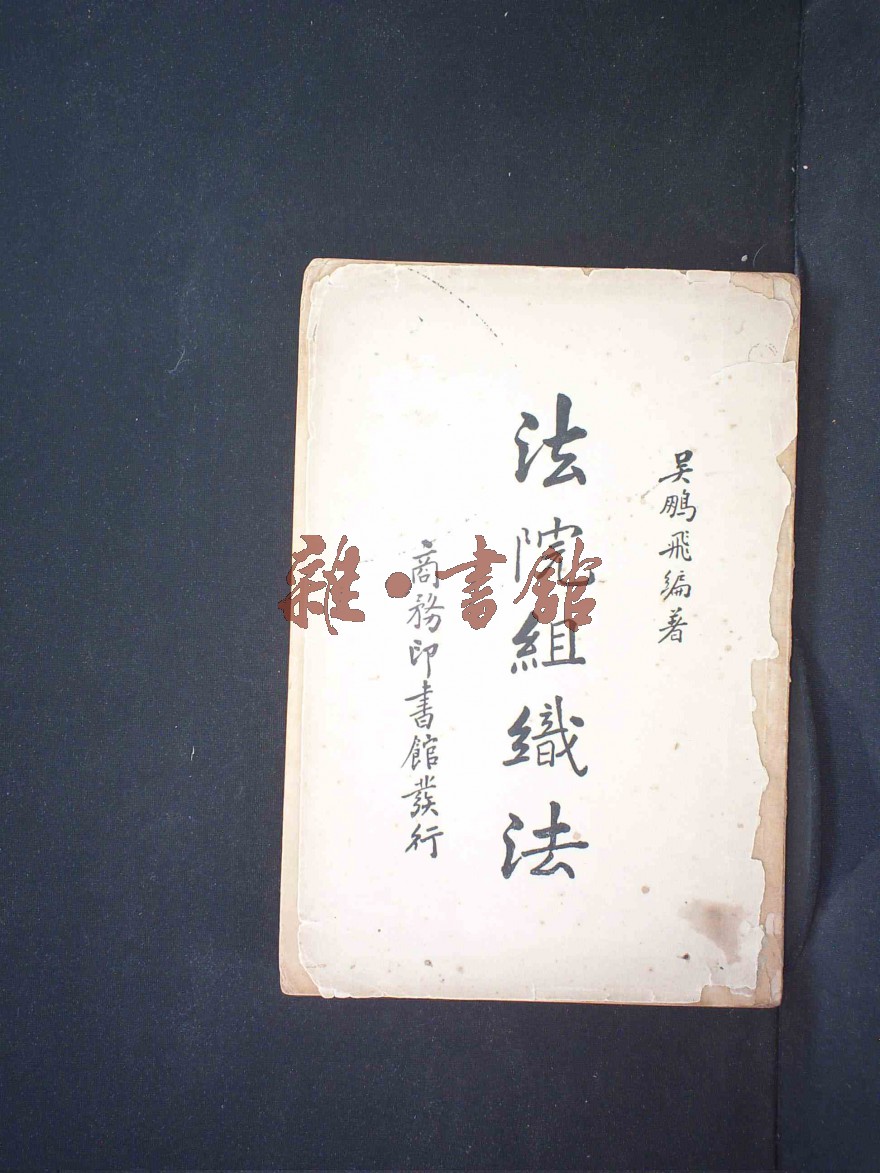 吴鵬飛編著
法院組織法
商務印書館發行
雜·書館